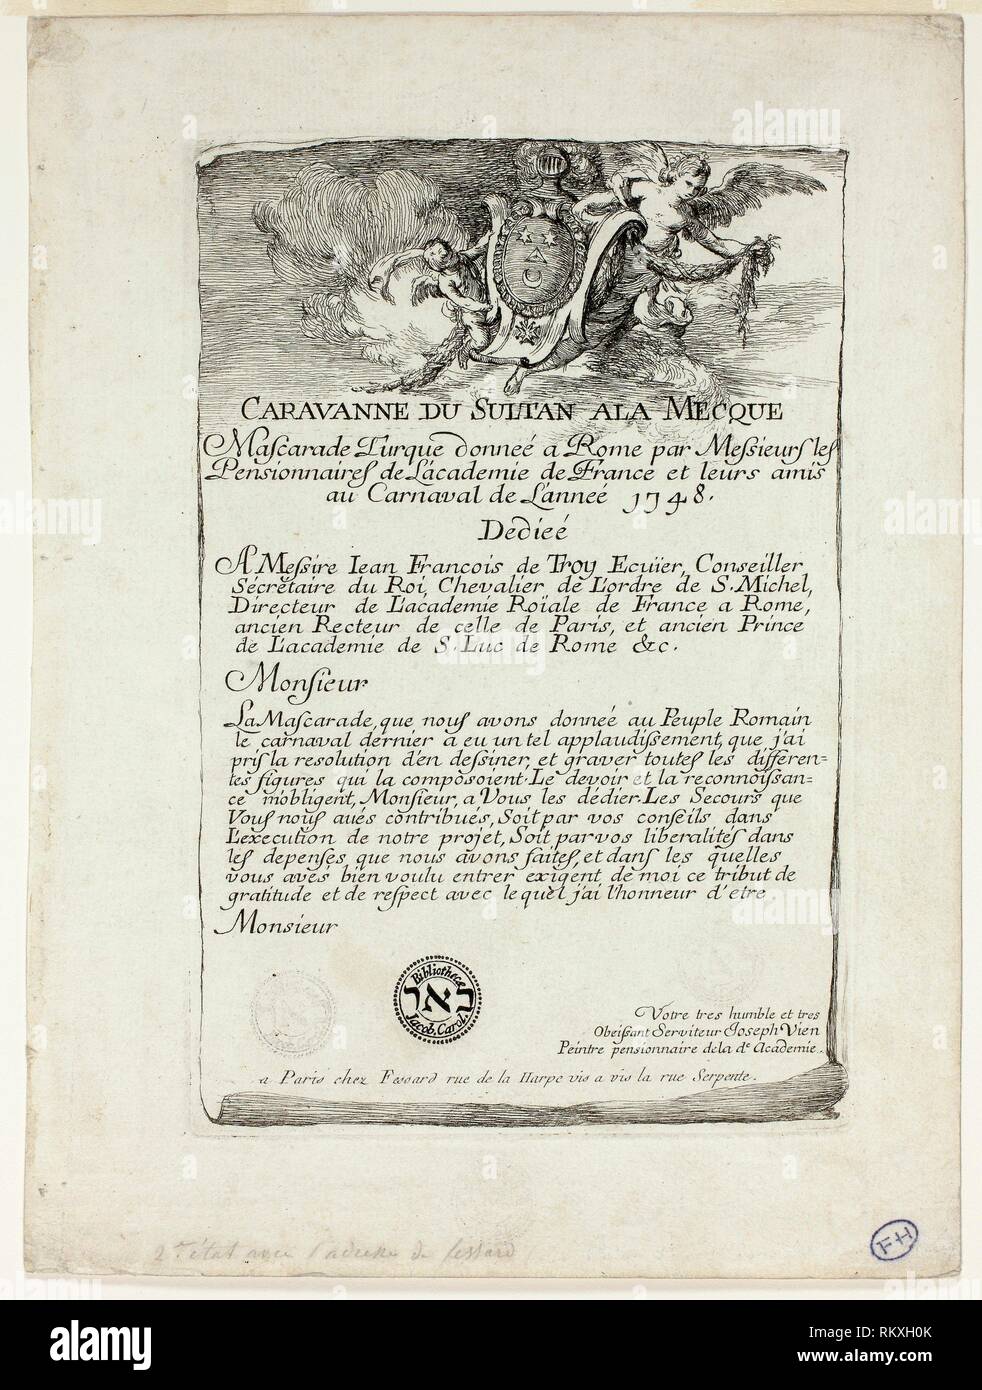 CARAVANNE DU SULTAN A LA MECQUE
Mascarade Turque donneé a Rome par Messieurs les
Pensionnaires de L'academie de France et leurs amis
au Carnaval de L'anneé 1748.
Dedieé
A Messire Iean Francois de Troy Ecüier, Conseiller
Sécretaire du Roi, Chevalier de L'ordre de S. Michel,
Directeur de L'academie Roïale de France a Rome,
ancien Recteur de celle de Paris, et ancien Prince
de L'academie de S. Luc de Rome &c.
Monsieur
La Mascarade, que nous avons donneé au Peuple Romain
le carnaval dernier a eu un tel applaudissement, que j'ai
pris la resolution d'en dessiner, et graver toutes les differen=
tes figures qui la composoient. Le devoir et la reconnoissan=
ce m'obligent, Monsieur, a Vous les dédier. Les Secours que
Vous nous avés contribués, Soit par vos conseils dans
L'execution de notre projet, Soit par vos liberalités dans
les depenses que nous avons faites, et dans les quelles
vous avés bien voulu entrer exigent de moi ce tribut de
gratitude et de respect avec lequel j'ai l'honneur d'etre
Monsieur
Bibliotheca
נאר
Jacob. Carol.
Votre tres humble et tres
Obeissant Serviteur Joseph Vien
Peintre pensionnaire de la de Academie.
a Paris chez Fessard rue de la Harpe vis a vis la rue Serpente.
2e état avec l'adresse de Fessard
FH
alamy
Image ID: RKXH0K
www.alamy.com